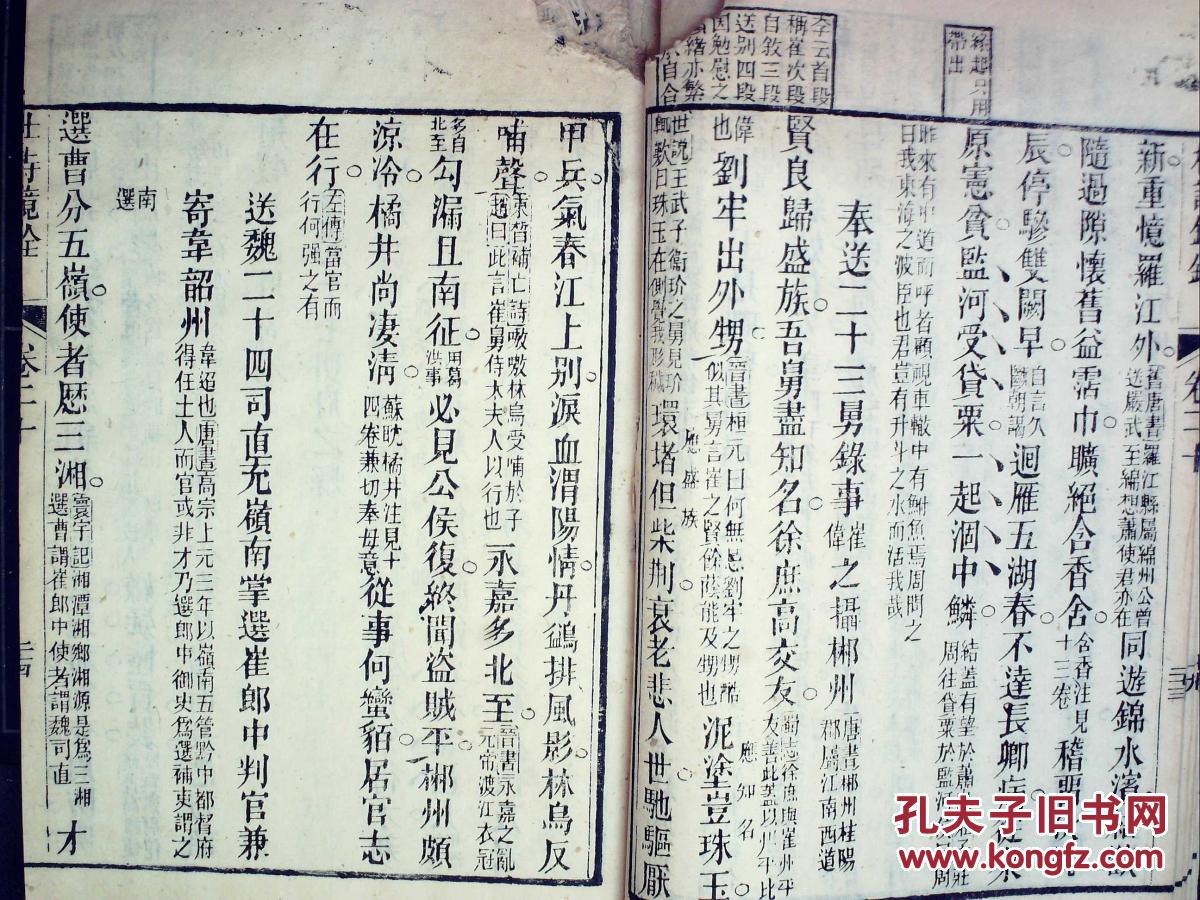 絲起只用
帶出
李云首段
稱崔次段
自敘三段
送别四段
因勉慰之
緒亦繁
自合
新重憶羅江外舊唐書羅江縣屬綿州公曾送嚴武至綿想蕭使君亦在同遊錦水濱
隨過隙懷舊益霑巾曠絕含香舍含香注見十三卷稽
辰停驂雙闕早自言久隔朝謁迴雁五湖春不達長卿病從來
原憲貧監河受貸粟一起涸中鱗結蓋有望於蕭莊周往貸粟於監河周
昨來有中道而呼者顧視車轍中有鮒魚焉周問之曰我東海之波臣也君豈有升斗之水而活我哉
奉送二十三舅錄事崔偉之攝郴州唐書郴州桂陽郡屬江南西道
賢良歸盛族吾舅盡知名徐庶高交友蜀志徐庶與崔州平友善此蓋以州平比
偉也劉牢出外甥晉書桓元曰何無忌劉牢之甥酷似其舅言崔之賢餘蔭能及甥也泥塗豈珠玉應知名
世說王武子衛玠之舅見玠輒歎曰珠玉在側覺我形穢環堵但柴荆應盛族衰老悲人世馳驅厭
卷二十
甲兵氣春江上别淚血渭陽情丹鷁排風影林烏反
哺聲束皙補亡詩嗷嗷林烏受哺於子趙曰此言崔舅侍太夫人以行也永嘉多北至晉書永嘉之亂元帝渡江衣冠
多自北至勾漏且南征用葛洪事必見公侯復終聞盜賊平郴州頗
涼冷橘井尚淒清蘇眈橘井注見十四卷兼切奉母意從事何蠻貊居官志
在行左傳當官而行何强之有
送魏二十四司直充嶺南掌選崔郎中判官兼
寄韋韶州韋紹也唐書高宗上元三年以嶺南五管黔中都督府得任土人而官或非才乃選郎中御史爲選補吏謂之
南選
選曹分五嶺使者歷三湘寰宇記湘潭湘鄉湘源是爲三湘選曹謂崔郎中使者謂魏司直才
杜詩鏡銓
卷二十
孔夫子旧书网
www.kongfz.com